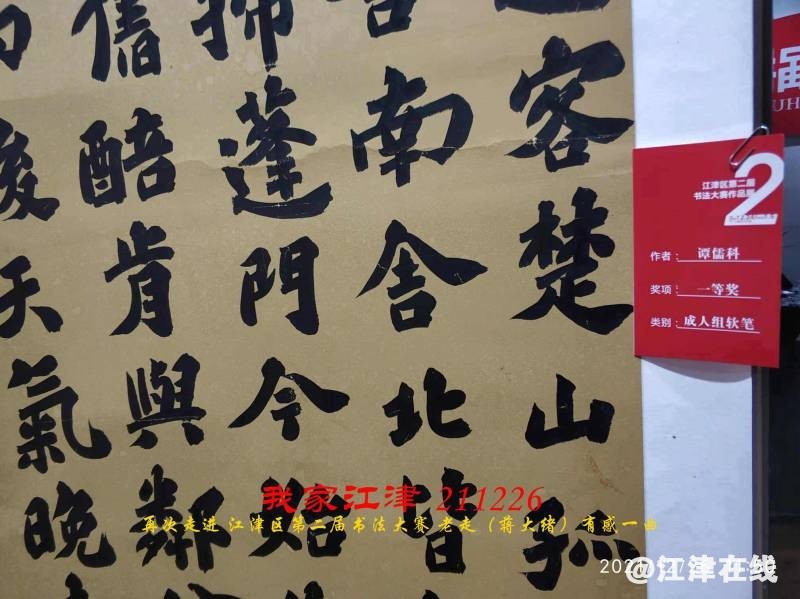 客楚山孤
南舍北皆
掃蓬門今始
醅肯與鄰
後天氣晚
江津区第二届
书法大赛作品展
2
作者：谭儒科
奖项：一等奖
类别：成人组软笔
我家江津 211226
再次走进江津区第二届书法大赛老走（蒋大绪）有感一曲
@江津在线